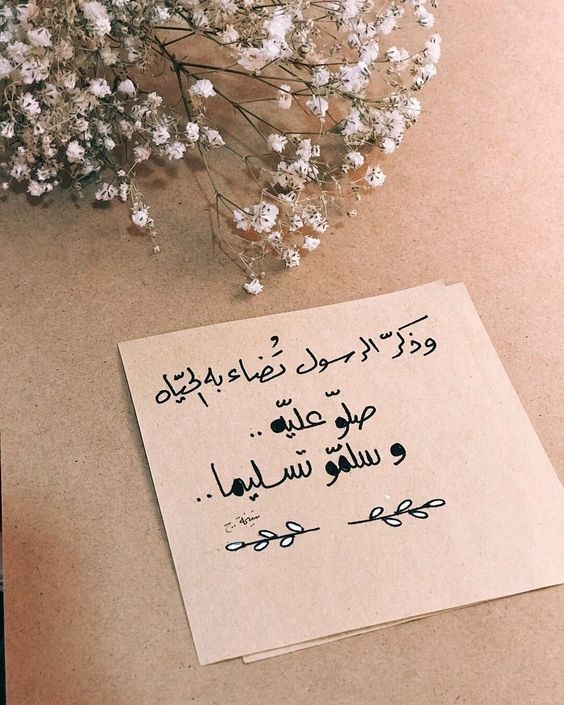 وذكرّ الرسول تُضاء به الحيّاه
صلّو عليّه ..
و سلموّ تسليما ..